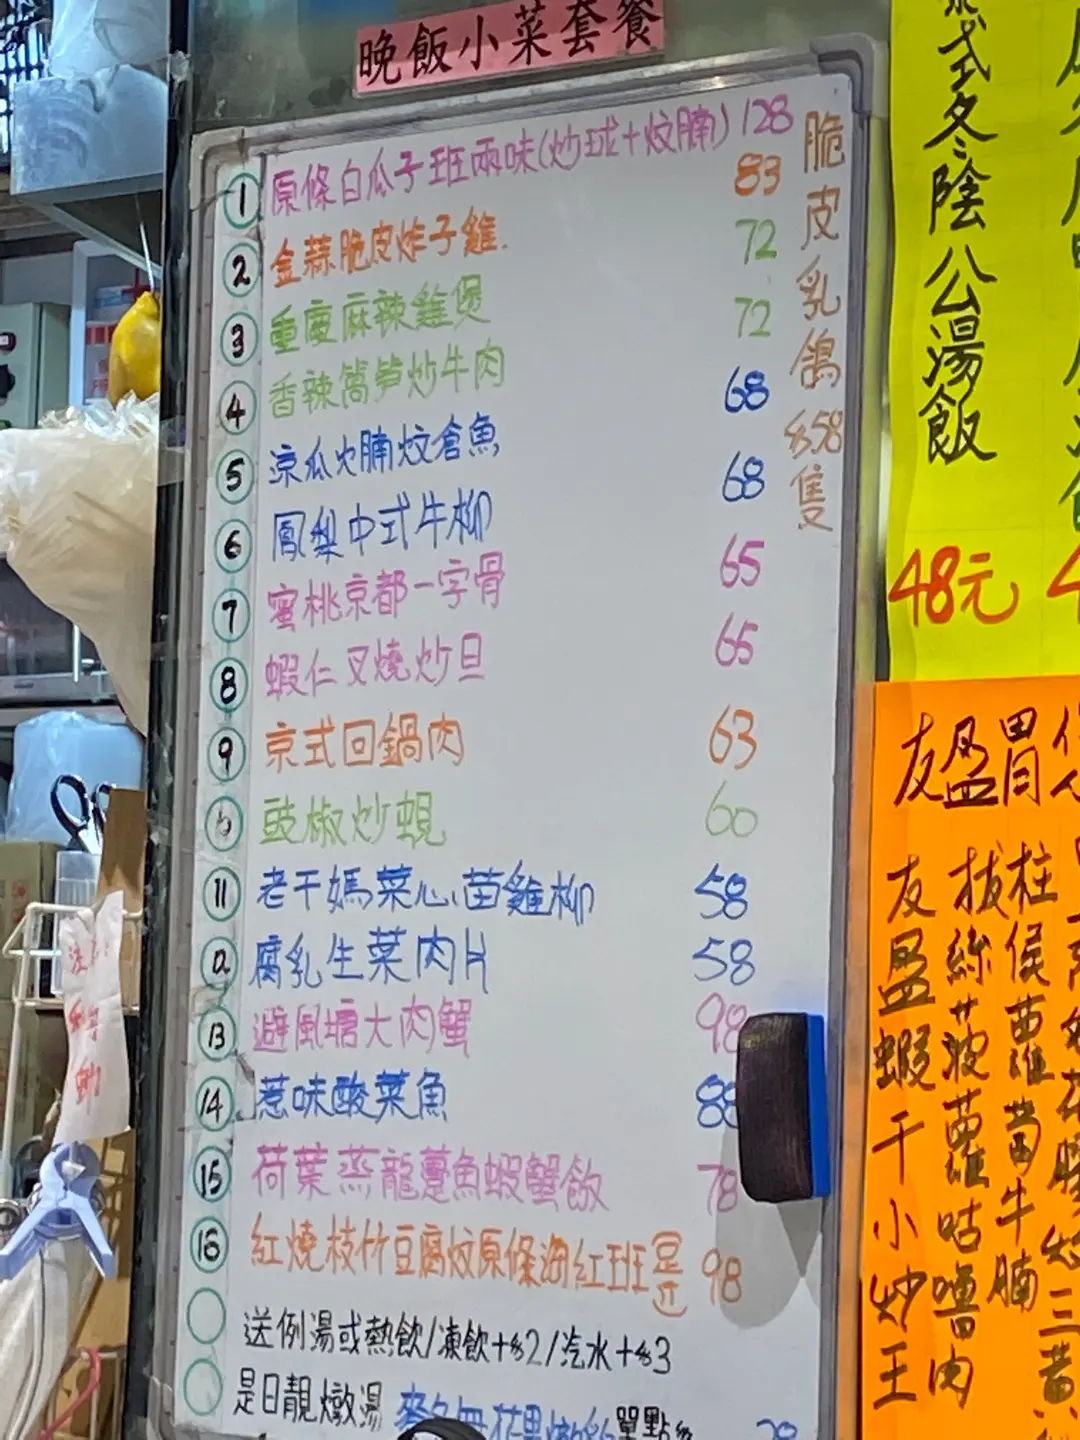 晚飯小菜套餐
1 原條白瓜子班兩味(炒球+炆腩) 128
2 金蒜脆皮炸子雞. 83
3 重慶麻辣雞煲 72
4 香辣萵笋炒牛肉 72
5 涼瓜火腩炆倉魚 68
6 鳳梨中式牛柳 68
7 蜜桃京都一字骨 65
8 蝦仁叉燒炒旦 65
9 京式回鍋肉 63
豉椒炒蜆 60
11 老干媽菜心苗雞柳 58
12 腐乳生菜肉片 58
13 避風塘大肉蟹 98
14 惹味酸菜魚 88
15 荷葉蒸龍躉魚蝦蟹飯 78
16 紅燒枝竹豆腐炆原條海紅班 98
送例湯或熱飲/凍飲+$2/汽水+$3
是日靚燉湯
單點
脆皮乳鴿$58隻
式冬陰公湯飯
48元
友盈胃
柱侯蘿蔔牛腩
拔絲菠蘿咕嚕肉
友盈蝦干小炒王